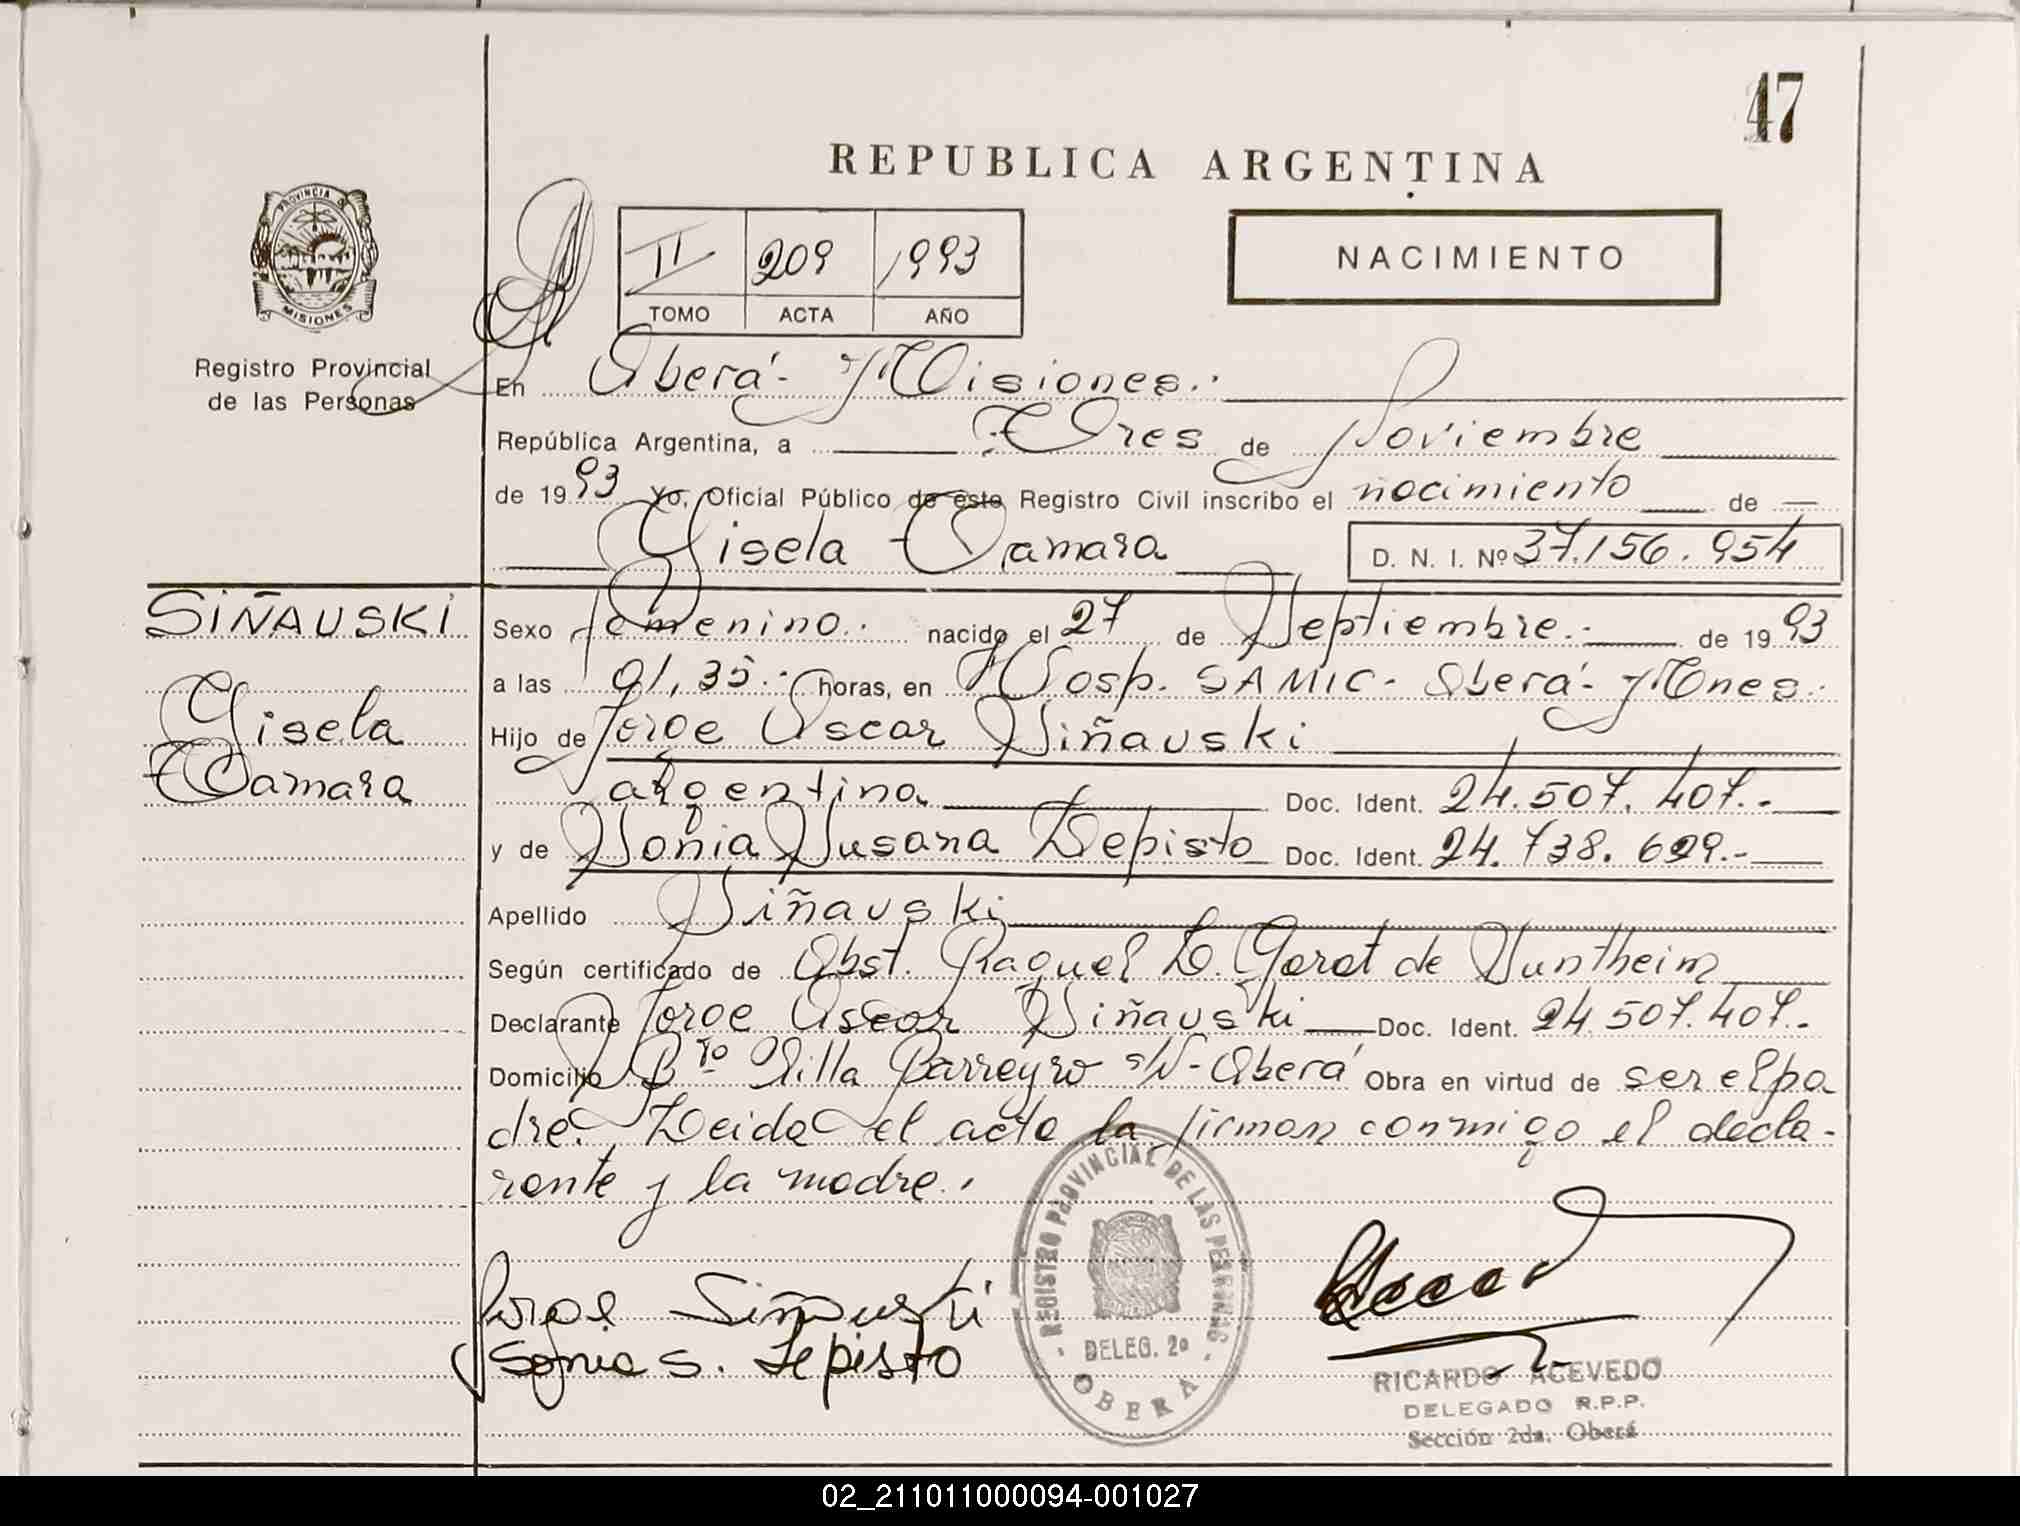 47
REPUBLICA ARGENTINA
PROVINCIA DE
MISIONES
Registro Provincial
de las Personas
II 209 1993
TOMO ACTA AÑO
NACIMIENTO
En Oberá - Misiones.-
República Argentina, a Tres de Noviembre
de 1993 Yo, Oficial Público de este Registro Civil inscribo el nacimiento de
Gisela Tamara D. N. I. Nº 37.156.954
SIÑAUSKI
Gisela
Tamara
Sexo femenino.- nacido el 27 de Septiembre.- de 1993
a las 01,35.- horas, en Hosp. SAMIC - Oberá - Mnes.-
Hijo de Jorge Oscar Siñauski
argentina Doc. Ident. 24.507.407.-
y de Sonia Susana Lepisto Doc. Ident. 24.738.629.-
Apellido Siñauski
Según certificado de Obst. Raquel L. Garat de Suntheim
Declarante Jorge Oscar Siñauski Doc. Ident. 24.507.407.-
Domicilio Brº Villa Barreyro s/N - Oberá Obra en virtud de ser el pa
dre. Leida el acta la firman conmigo el decla-
rante y la madre.-
Jorge Siñauski
Sonia S. Lepisto
REGISTRO PROVINCIAL DE LAS PERSONAS
DELEG. 2º
OBERA
RICARDO ACEVEDO
DELEGADO R.P.P.
Sección 2da. Oberá
02_211011000094-001027